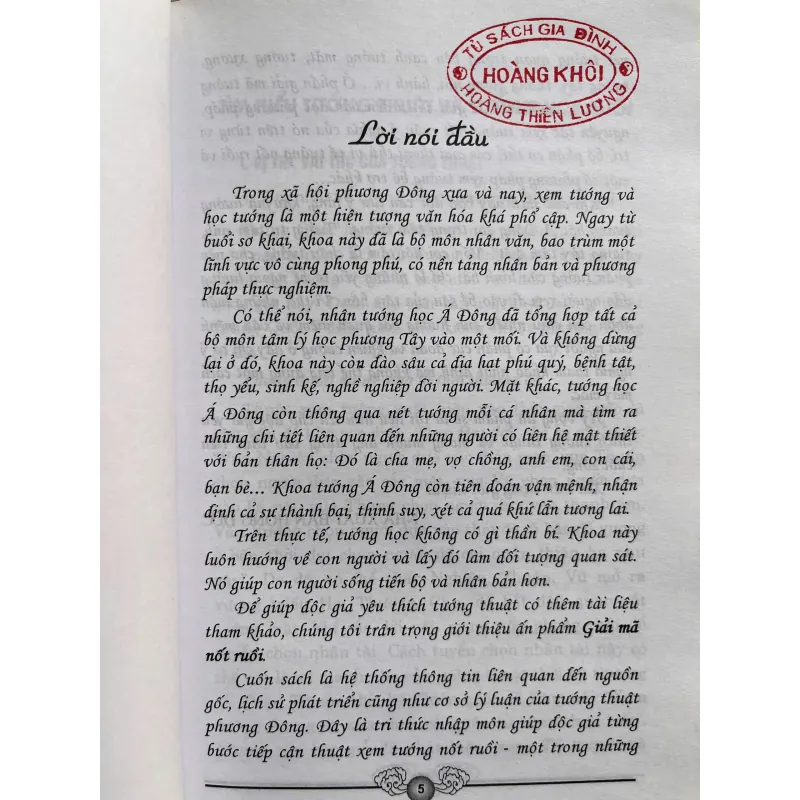 TỦ SÁCH GIA ĐÌNH
HOÀNG KHÔI
HOÀNG THIÊN LƯƠNG
Lời nói đầu
Trong xã hội phương Đông xưa và nay, xem tướng và
học tướng là một hiện tượng văn hóa khá phổ cập. Ngay từ
buổi sơ khai, khoa này đã là bộ môn nhân văn, bao trùm một
lĩnh vực vô cùng phong phú, có nền tảng nhân bản và phương
pháp thực nghiệm.
Có thể nói, nhân tướng học Á Đông đã tổng hợp tất cả
bộ môn tâm lý học phương Tây vào một mối. Và không dừng
lại ở đó, khoa này còn đào sâu cả địa hạt phú quý, bệnh tật,
thọ yểu, sinh kế, nghề nghiệp đời người. Mặt khác, tướng học
Á Đông còn thông qua nét tướng mỗi cá nhân mà tìm ra
những chi tiết liên quan đến những người có liên hệ mật thiết
với bản thân họ: Đó là cha mẹ, vợ chồng, anh em, con cái,
bạn bè... Khoa tướng Á Đông còn tiên đoán vận mệnh, nhận
định cả sự thành bại, thịnh suy, xét cả quá khứ lẫn tương lai.
Trên thực tế, tướng học không có gì thần bí. Khoa này
luôn hướng về con người và lấy đó làm đối tượng quan sát.
Nó giúp con người sống tiến bộ và nhân bản hơn.
Để giúp độc giả yêu thích tướng thuật có thêm tài liệu
tham khảo, chúng tôi trân trọng giới thiệu ấn phẩm Giải mã
nốt ruồi.
Cuốn sách là hệ thống thông tin liên quan đến nguồn
gốc, lịch sử phát triển cũng như cơ sở lý luận của tướng thuật
phương Đông. Đây là tri thức nhập môn giúp độc giả từng
bước tiếp cận thuật xem tướng nốt ruồi - một trong những
5